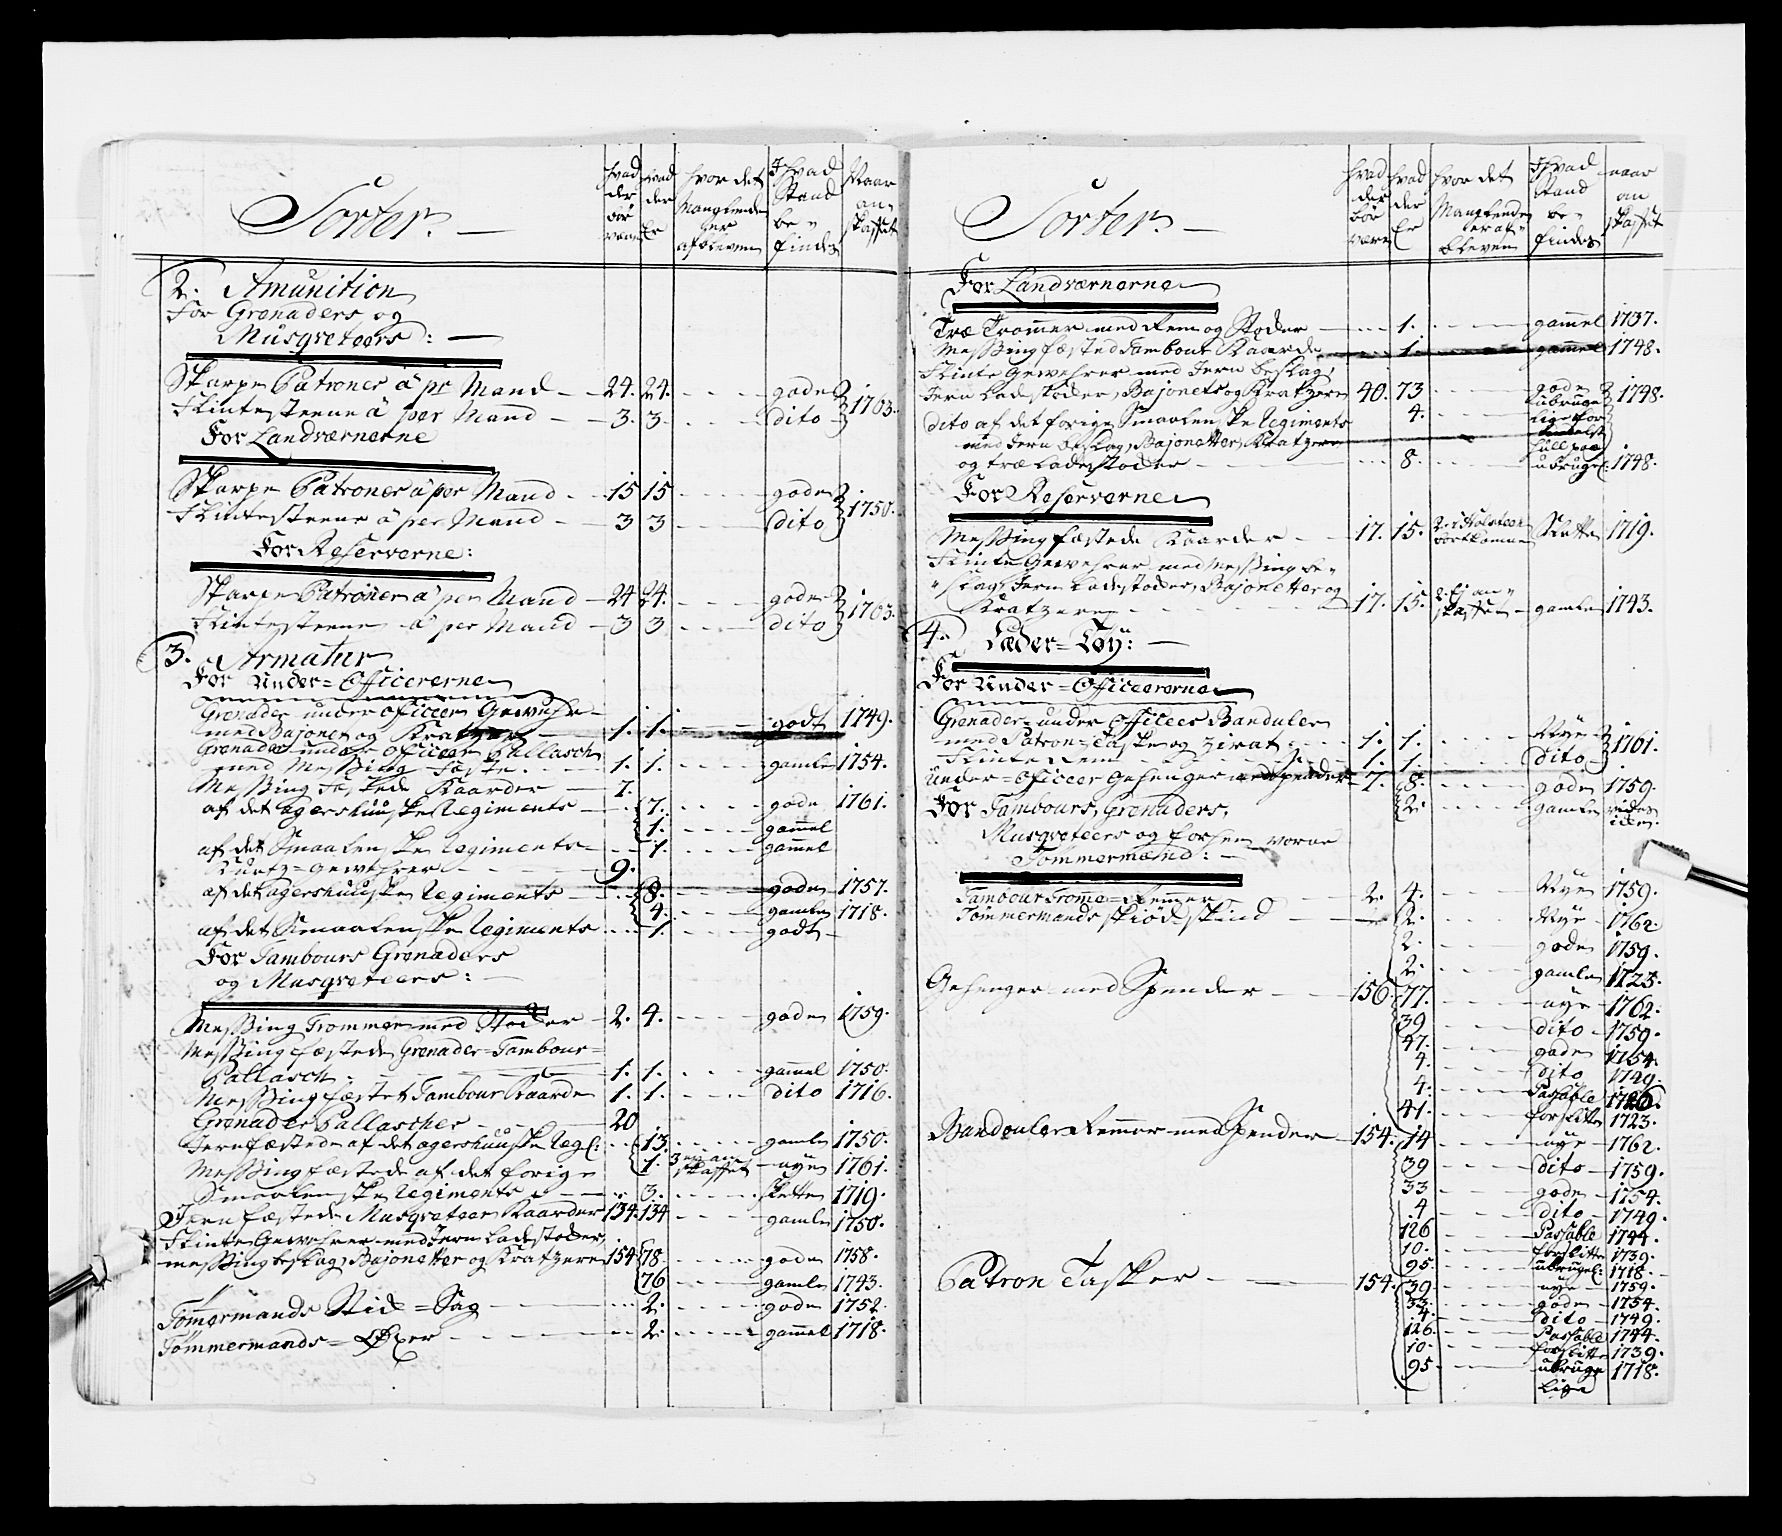 Sorter.
hvad der bør være
hvad der Er
hvor det Manglende er afbleven
I hvad Stand be= findes
Naar an= skaffet
2. Amunition
For Grenaders og
Musqveteers:
Skarpe Patroner a pr Mand 24. 24. gode
Flintesteene a per Mand 3. 3. dito 1763.
For Landværnerne
Skarpe Patroner a per Mand 15 15 gode
Flintesteene a per Mand 3 3 dito 1750.
For Reserverne:
Skarpe Patroner a per Mand 24 24. gode
Flintesteene a per Mand 3 3 dito 1763.
3. Armatur
For Under=Officererne
Grenader under officeer Gewehr
med Bajonet og Kratzer 1. 1. godt 1749.
Grenader under officeer Pallasch
med Messing Fæste 1. 1. gamle 1754.
Messing Fæstede Kaarder 7.
af det agershuuske Regiments 7. gode 1761.
1. gammel
af det Smaalenske Regiments 1. gammel
Kurtz=gewehrer 9.
af det agershuuske Regiments 8. gode 1757.
4. gamle 1718.
af det Smaalenske Regiments 1. godt
For Tambours Grenaders
og Musqveteers:
Messing Trommer med Stokker 2. 4. gode 1759.
Messing fæstede Grenader=Tambour=
Pallasch 1. 1. gammel 1750.
Messing fæstet Tambour Kaarde 1. 1. dito 1716.
Grenader Pallascher 20
Jernfæstede af det agershuuske Reg: 13. gamle 1750.
Messing fæstede af det forige 1. 3 ej an skaffet nye 1761.
Smaalenske Regiments 3. slette 1719.
Jern fæstede Musqveteer Kaarder 134. 134 gamle 1750.
Flinte Gewehrer med Jern Ladestoder,
messing beslag, Bajonetter og Kratzere 154 78 gode 1758.
76 gamle 1743.
Tømermands Stid=Sag 2. gode 1752.
Tømmermands=Øxer 2. gammel 1718.
Sorter.
hvad der bør være
hvad der Er
hvor det Manglende er af= bleven
I hvad Stand be= findes
naar an skaffet
For Landværnerne
Træ Trommer med Rem og Stoder 1. gammel 1737.
Messing fæsted Tambour Kaarde 1. gammel 1748.
Flinte Gewehrer med Jern beslag,
Jern Ladestoder, Bajonets og Kratzere 40. 73 gode 1748.
dito af det forige Smaalenske Regiments 4. ubruge lige for
med Jern beslag, Bajonetter, Kratzere
og træ Ladestoder 8. ubrugel: 1748.
For Reserverne
Messing fæstede Kaarder 17. 15. 2 i Holsteen bortkomne Slette 1719.
Flinte Gewehrer med Messing be=
slag, Jern Ladestoder, Bajonetter og
Kratzere 17. 15. 2. Ej an= skaffet gamle 1743.
4. Læder=Tøy:
For Under=Officeererne
Grenader=under Officer Banduler
med Patron=Taske og Zirat 1. 1. Nye
Flinte Rem 1. 1. dito 1761.
Under=Officeer Gehenger med spender 7. 8. gode 1759.
2. gamle
For Tambours, Grenaders,
Musqveteers og forhen værende
Tømmermænd:
Tambour Tromme=Remmer 2. 4. Nye 1759.
Tømmermands skiødskind 2. Nye 1762.
2. gode 1759.
2. gamle 1723.
Gehenger med Spender 156 77. nye 1762.
39 dito 1759.
47. gode 1754.
4. dito 1749.
4. Passable
41. forslitte 1723.
Bandouler Remmer med Spender 154. 14 nye 1762.
39 dito 1759.
33 gode 1754.
4 dito 1749.
126 Passable 1744.
10. forslitte 1739.
95 ubrugel: 1718.
Patron Tasker 154. 39 nye 1759.
33. gode 1754.
4. dito 1749.
126. Passable 1744.
10. forslitte 1739.
95 ubruge lige 1718.